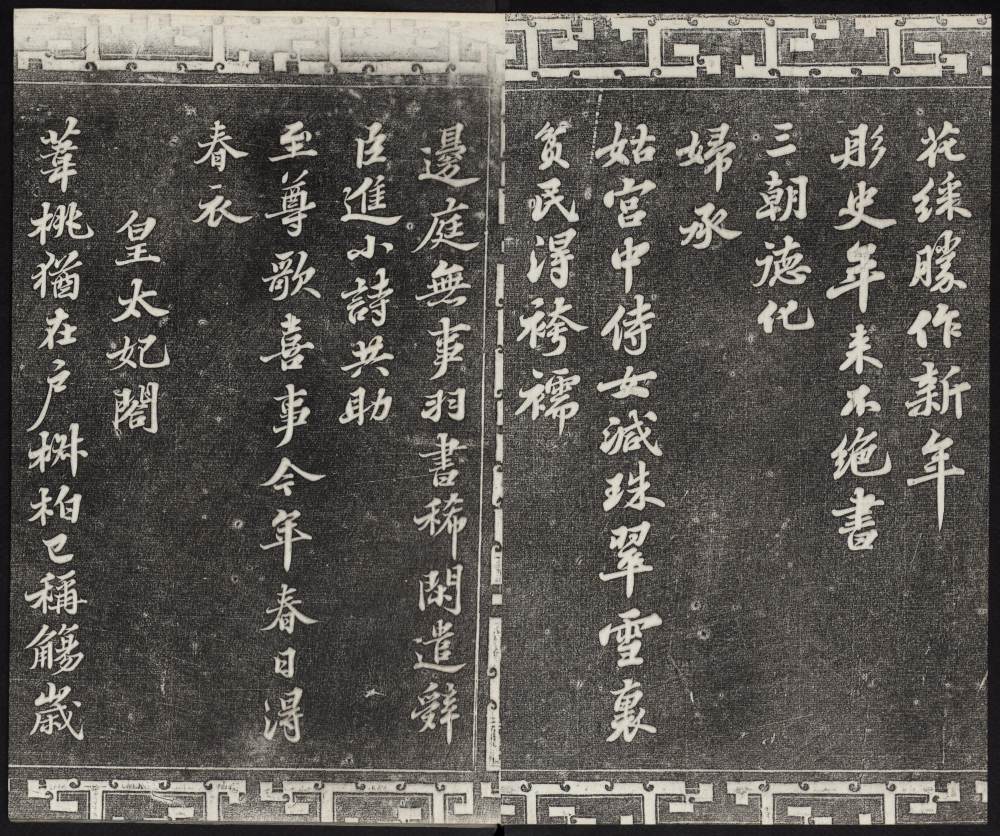 花綵勝作新年
彤史年来不絶書
三朝徳化
婦承
姑宮中侍女減珠翠雪裏
貧民得袴襦
邊庭無事羽書稀閑遣辭
臣進小詩共助
至尊歌喜事今年春日得
春衣
皇太妃閤
葦桃猶在户椒柏已稱觴歳